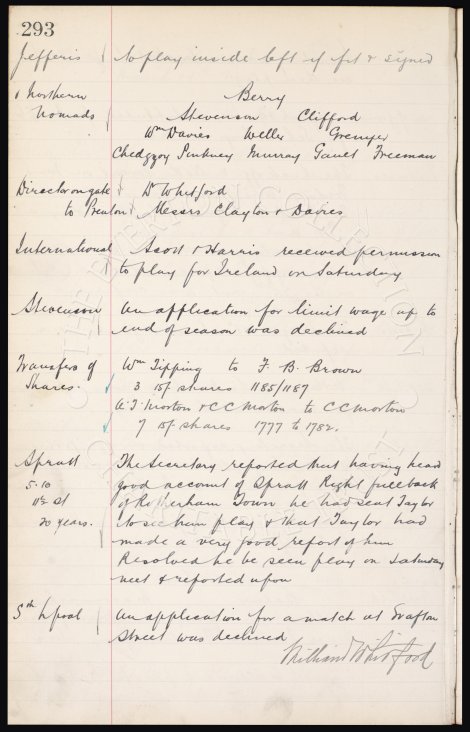 293
Jefferis to play inside left if fit & signed
Northern Nomads
Berry
Stevenson Clifford
Wm Davies Weller Grenyer
Chedgzoy Pinkney Murray Gault Freeman
Directors on gate Dr Whitford
to Preston Messrs Clayton & Davies
International Scott & Harris received permission
to play for Ireland on Saturday
Stevenson An application for limit wage up to
end of season was declined
Transfers of Wm Tipping to F. B. Brown
Shares. 3 1st shares 1185/1187
A. J. Morton & C C Morton to C C Morton
7 1st shares 1777 to 1782.
Spratt The Secretary reported that having head
5-10 good account of Spratt Right full back
11½ st of Rotherham Town he had sent Taylor
20 years. to see him play & that Taylor had
made a very good report of him
Resolved he be seen play on Saturday
next & reported upon
Sth Lpool An application for a match at Grafton
Street was declined
William Whitford
THE EVERTON COLLECTION